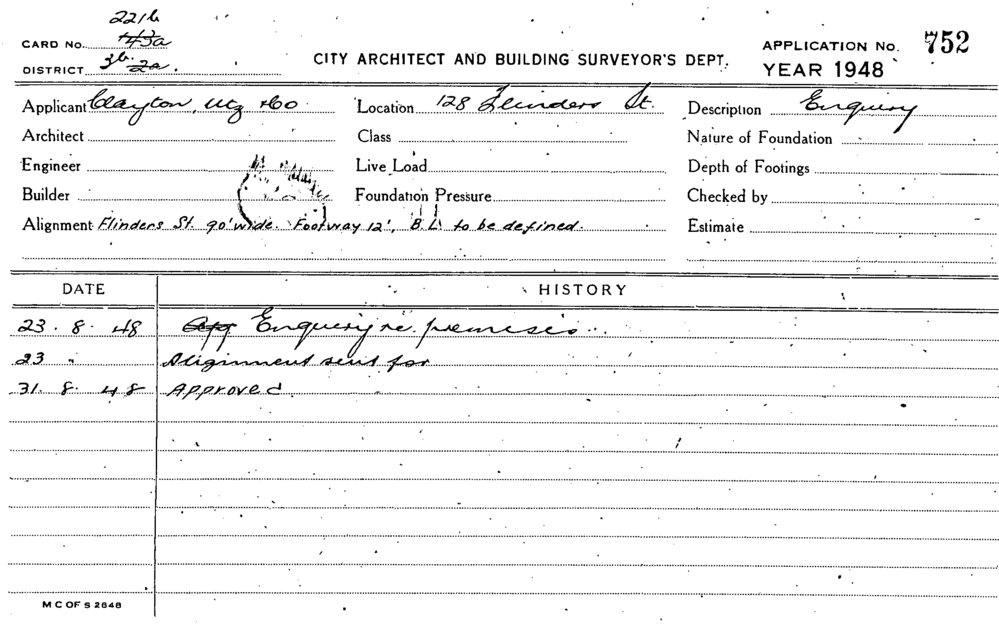 221b
CARD No. 43a
DISTRICT 3b. 2a.
CITY ARCHITECT AND BUILDING SURVEYOR'S DEPT.
APPLICATION No. 752
YEAR 1948
Applicant Clayton, Utz & Co. Location 128 Flinders St. Description Enquiry
Architect Class Nature of Foundation
Engineer Live Load Depth of Footings
Builder Foundation Pressure Checked by
Alignment Flinders St. 90' wide. Footway 12', B.L. to be defined. Estimate
DATE HISTORY
23. 8. 48 App Enquiry re. premises..
23 " Alignment sent for
31. 8. 48 Approved
M C OF S 2648